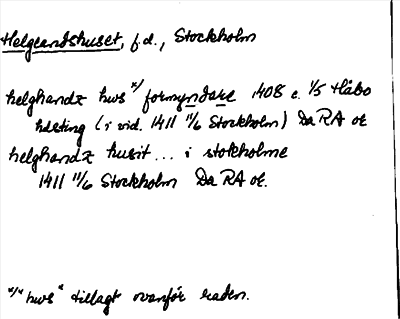 Helgeandshuset, f.d., Stockholm
helghandz hws */ formyndare 1408 e. 1/5 Håbo
häting (i vid. 1411 11/6 Stockholm) Da RA or.
helghandz husit ... i stokholme
1411 11/6 Stockholm Da RA or.
*/ "hws" tillagt ovanför raden.